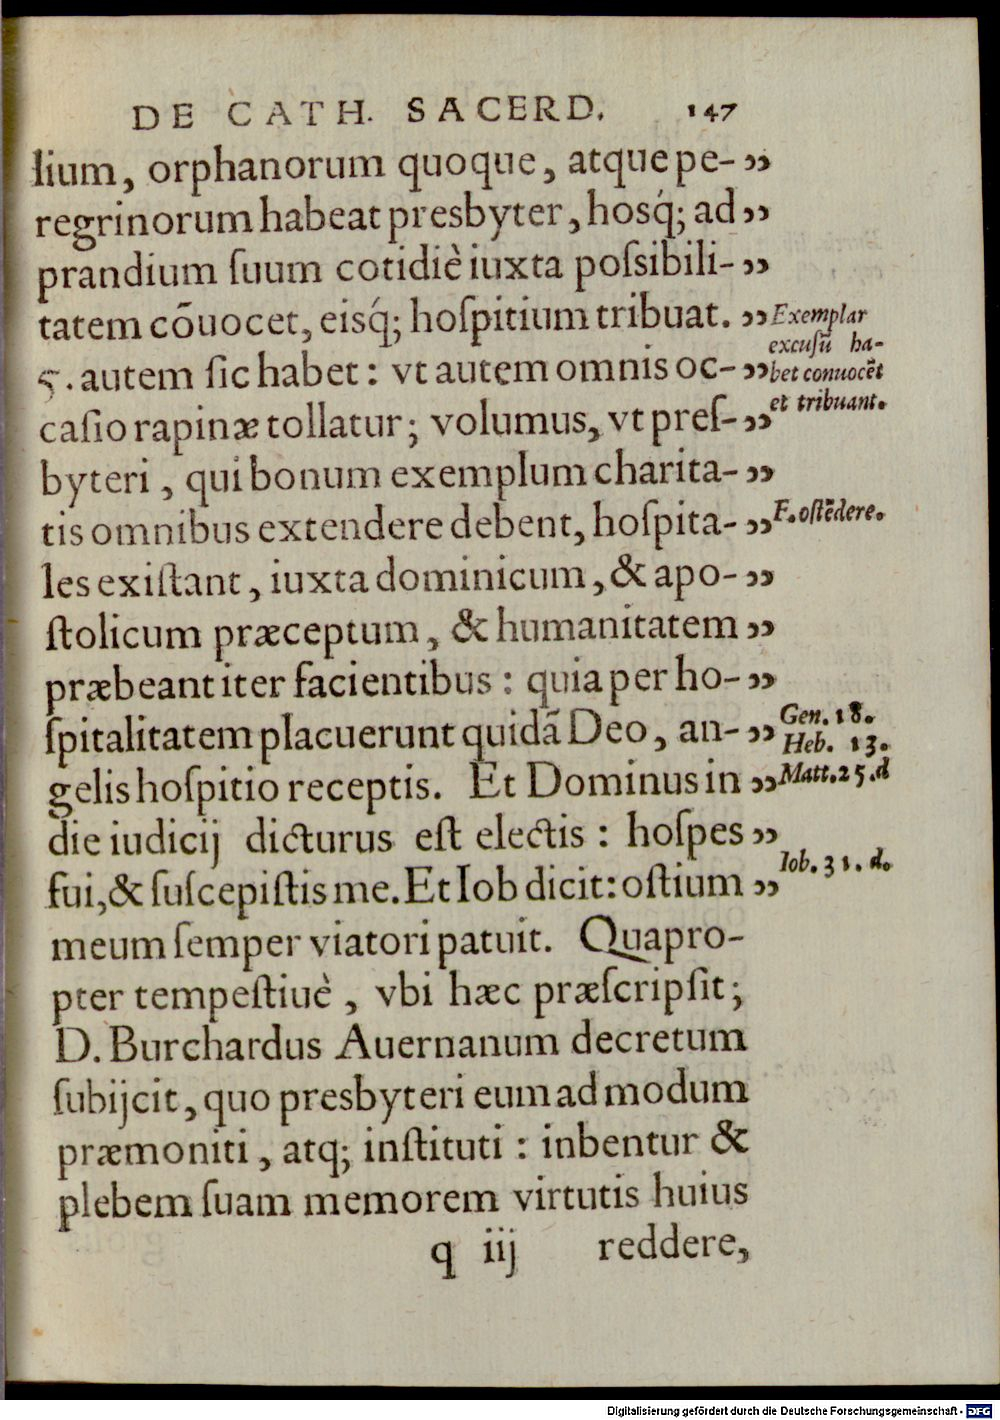 DE CATH. SACERD. 147
lium, orphanorum quoque, atque pe- ”
regrinorum habeat presbyter, hosq́; ad ”
prandium ſuum cotidiè iuxta poſsibili- ”
tatem cōuocet, eisq́; hoſpitium tribuat. ”
5. autem ſic habet: vt autem omnis oc- ”
caſio rapinæ tollatur; volumus, vt preſ- ”
byteri, qui bonum exemplum charita- ”
tis omnibus extendere debent, hoſpita- ”
les exiſtant, iuxta dominicum, & apo- ”
ſtolicum præceptum, & humanitatem ”
præbeant iter facientibus: quia per ho- ”
ſpitalitatem placuerunt quidā Deo, an- ”
gelis hoſpitio receptis. Et Dominus in ”
die iudicij dicturus eſt electis: hoſpes ”
fui, & ſuſcepiſtis me. Et Iob dicit: oſtium ”
meum ſemper viatori patuit. Quapro-
pter tempeſtiuè, vbi hæc præſcripſit;
D. Burchardus Auernanum decretum
ſubijcit, quo presbyteri eum ad modum
præmoniti, atq; inſtituti: inbentur &
plebem ſuam memorem virtutis huius
q iij reddere,
Exemplar
excuſū ha-
bet conuocēt
et tribuant.
F. oſtēdere.
Gen. 18.
Heb. 13.
Matt. 25. d
Iob. 31. d.
Digitalisierung gefördert durch die Deutsche Forschungsgemeinschaft - DFG